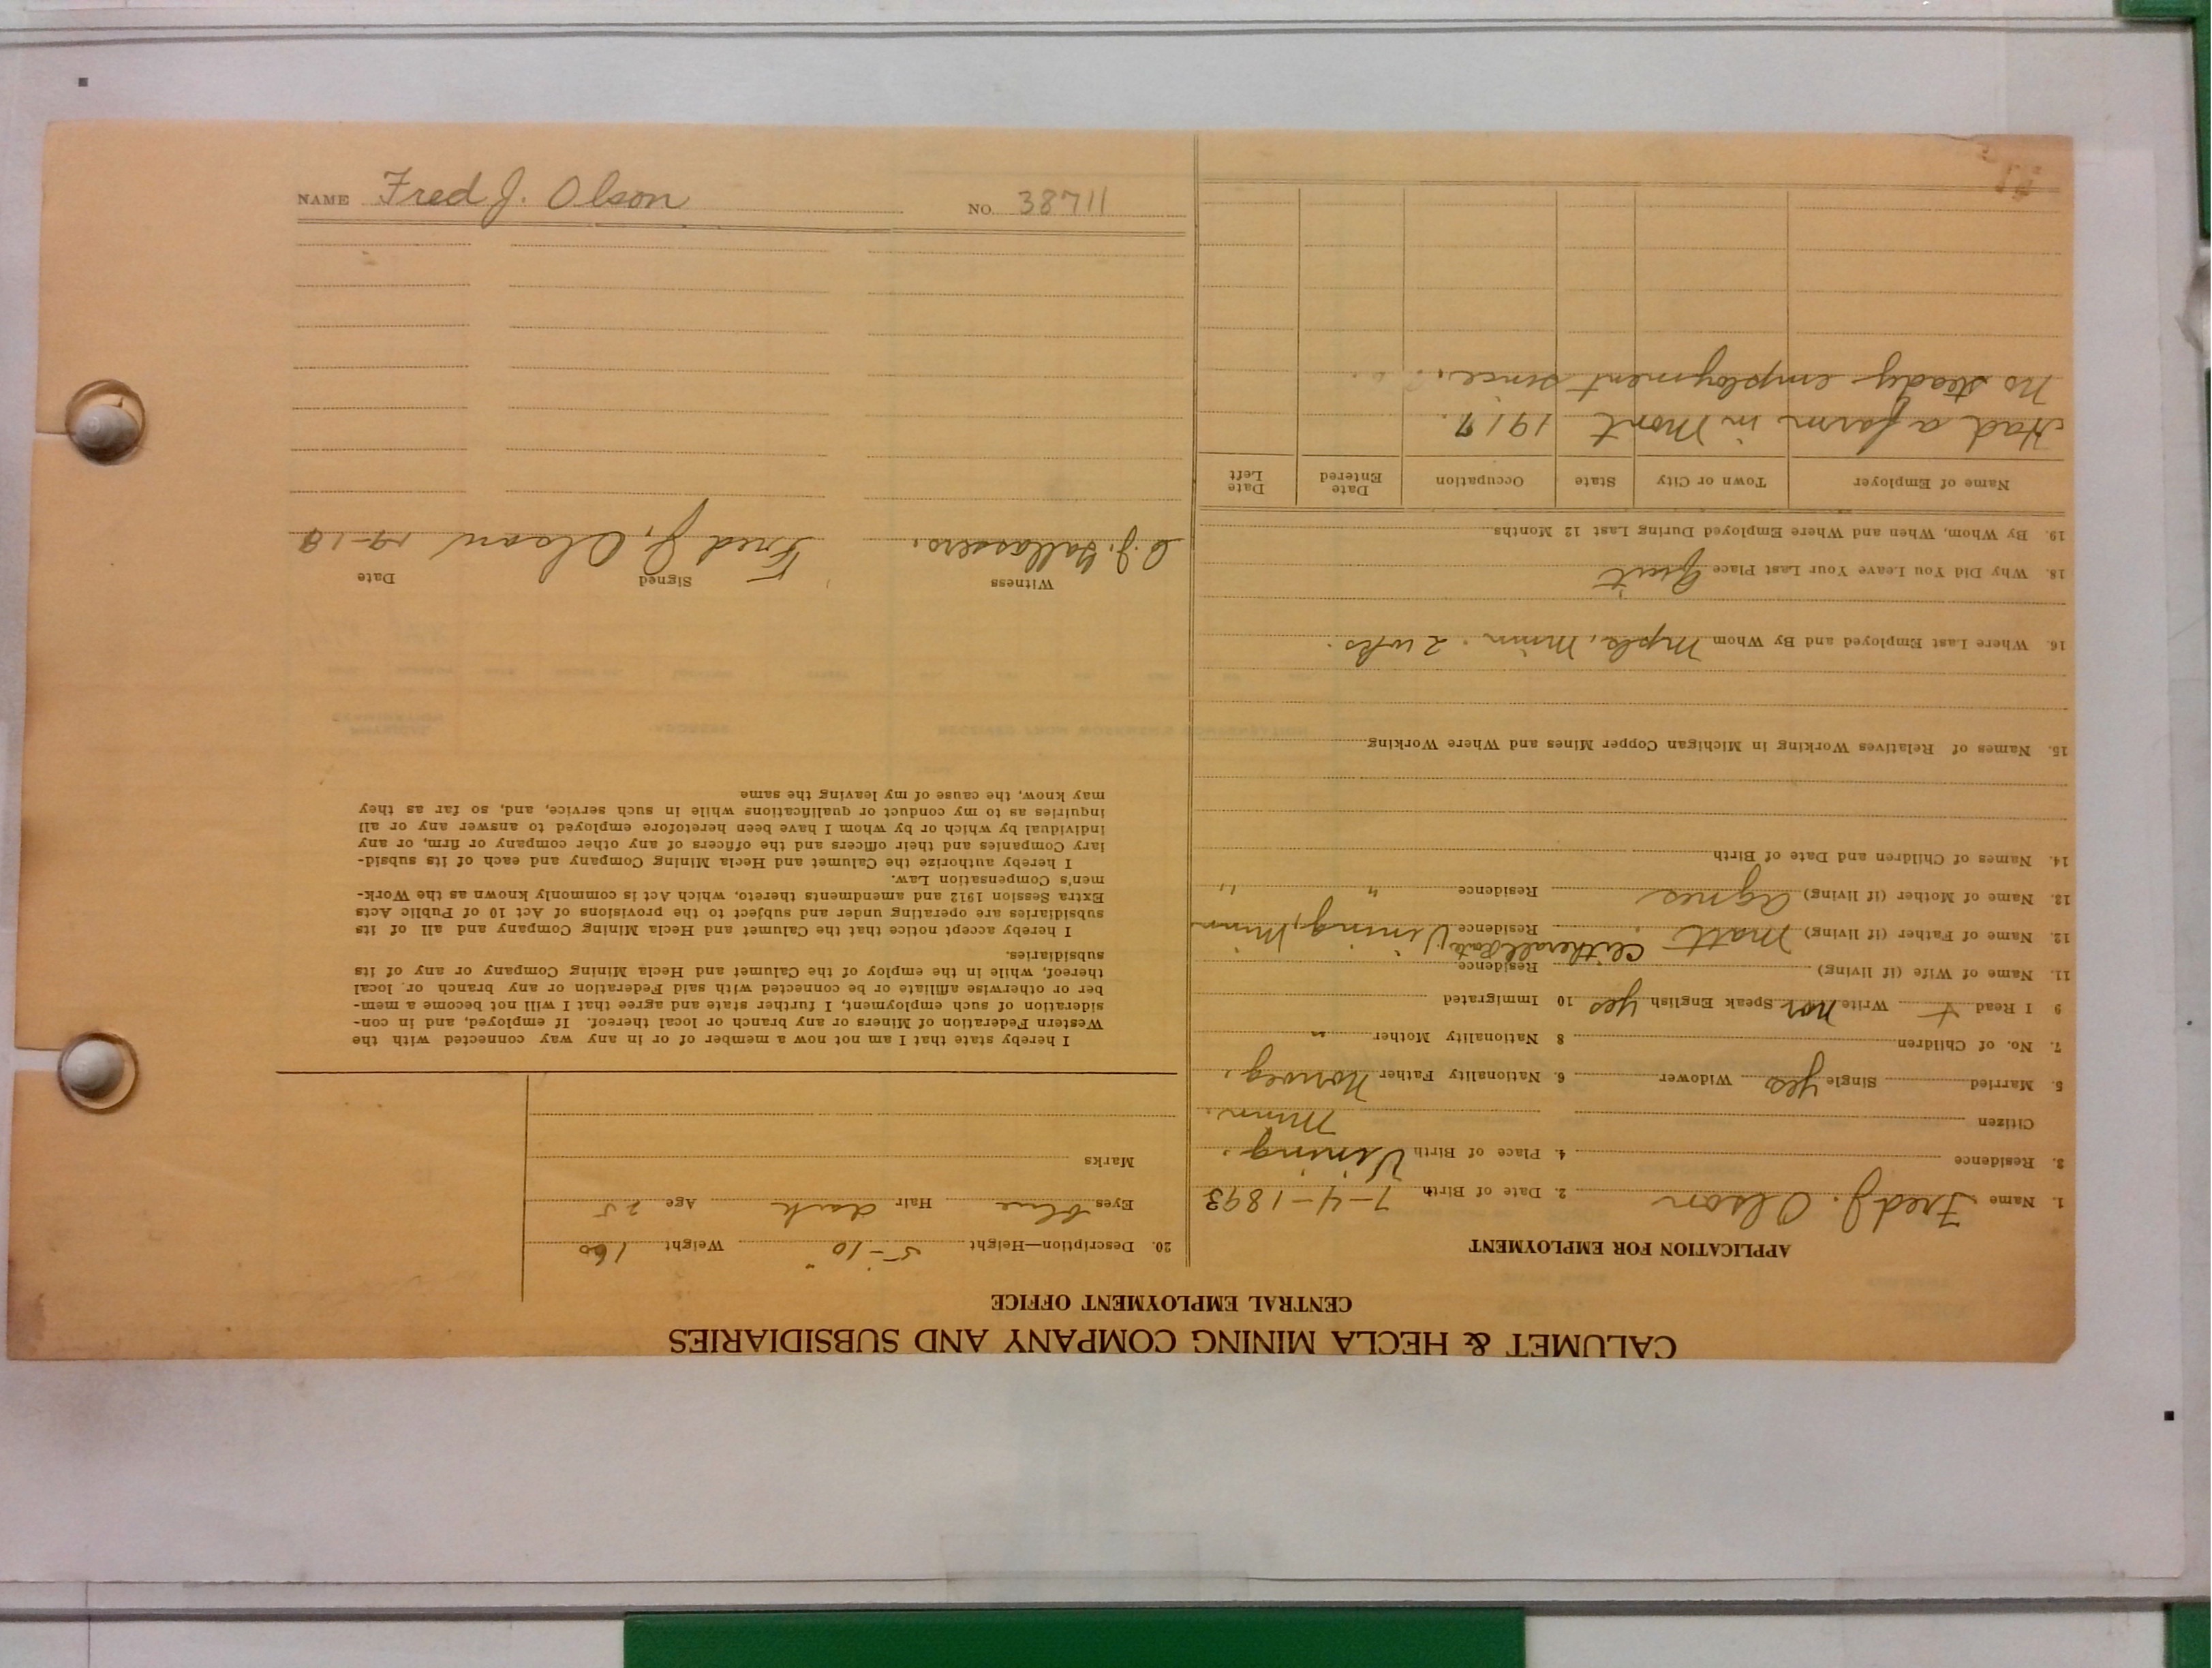 CALUMET & HECLA MINING COMPANY AND SUBSIDIARIES
CENTRAL EMPLOYMENT OFFICE
APPLICATION FOR EMPLOYMENT
1. Name Fred J. Olson 2. Date of Birth 7-4-1893
3. Residence 4. Place of Birth Vining,
Citizen Minn.
5. Married Single yes Widower 6. Nationality Father Norweg.
7. No. of Children 8 Nationality Mother "
9 I Read + Write Nor. Speak English yes 10 Immigrated
11. Name of Wife (if living) Residence
12. Name of Father (if living) Matt. Clitherall Rate, Residence Vining, Minn
13. Name of Mother (if living) Agnes Residence " "
14. Names of Children and Date of Birth
15. Names of Relatives Working in Michigan Copper Mines and Where Working
16. Where Last Employed and By Whom Mpls, Minn. 2 wks.
18. Why Did You Leave Your Last Place Quit
19. By Whom, When and Where Employed During Last 12 Months
Name of Employer Town or City State Occupation Date Entered Date Left
Had a farm in Mont 1917.
No steady employment since.
20. Description—Height 5-10" Weight 160
Eyes blue Hair dark Age 25
Marks
I hereby state that I am not now a member of or in any way connected with the
Western Federation of Miners or any branch or local thereof. If employed, and in con-
sideration of such employment, I further state and agree that I will not become a mem-
ber or otherwise affiliate or be connected with said Federation or any branch or local
thereof, while in the employ of the Calumet and Hecla Mining Company or any of its
subsidiaries.
I hereby accept notice that the Calumet and Hecla Mining Company and all of its
subsidiaries are operating under and subject to the provisions of Act 10 of Public Acts
Extra Session 1912 and amendments thereto, which Act is commonly known as the Work-
men's Compensation Law.
I hereby authorize the Calumet and Hecla Mining Company and each of its subsid-
iary Companies and their officers and the officers of any other company or firm, or any
individual by which or by whom I have been heretofore employed to answer any or all
inquiries as to my conduct or qualifications while in such service, and, so far as they
may know, the cause of my leaving the same
Witness Signed Date
Fred J. Olson
NAME Fred J. Olson NO. 38711